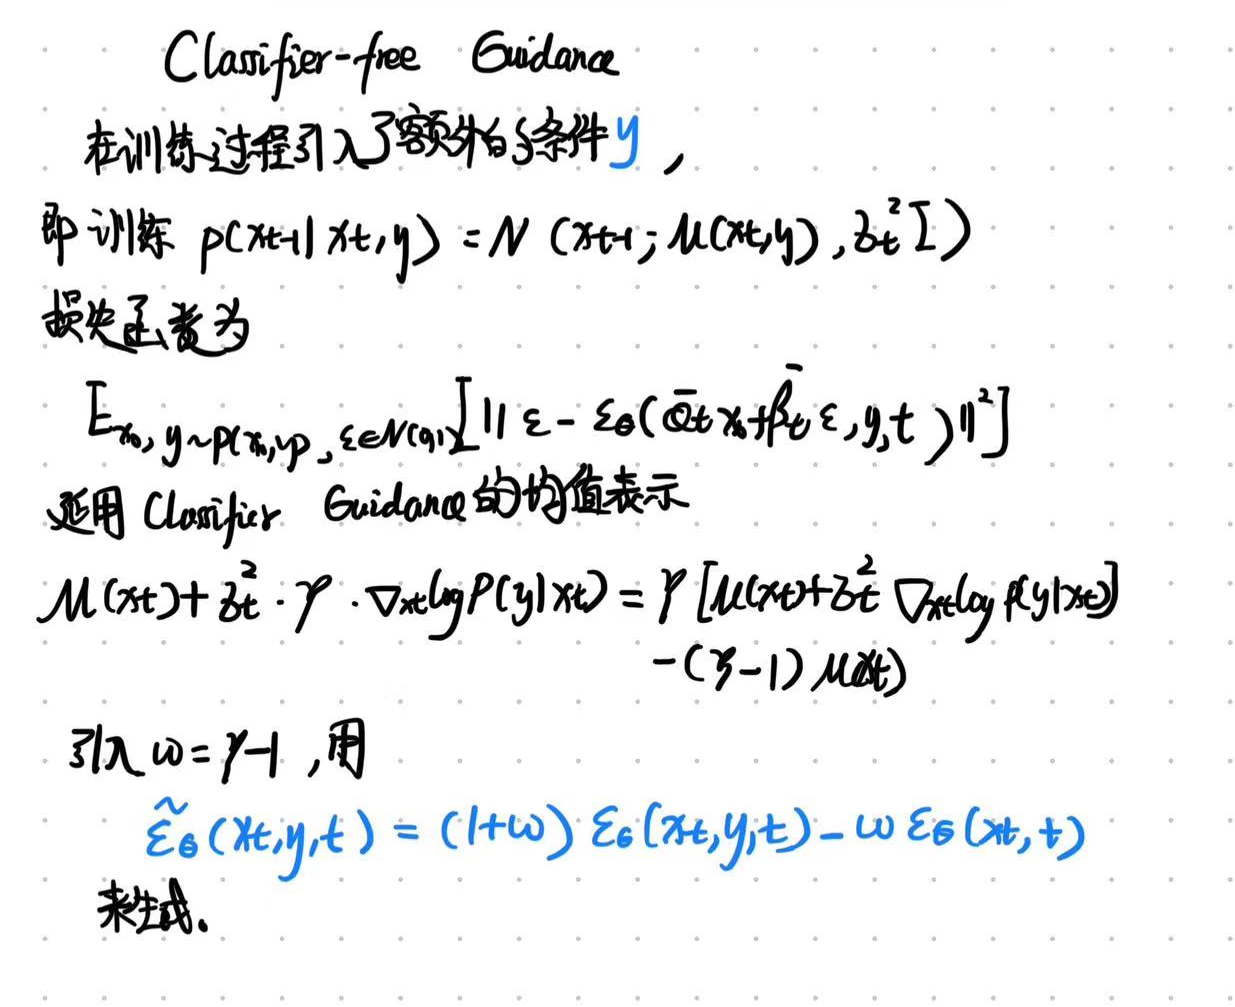 Classifier-free Guidance
在训练过程引入了额外的条件y,
即训练 p(xt-1|xt,y) = N(xt-1; μ(xt,y), σt²I)
损失函数为
E x0,y~p(x0,y), ε∈N(0,1) [||ε - εθ(ᾱt x0 + β̄t ε, y, t)||²]
延用 Classifier Guidance的均值表示
μ(xt) + σt² · γ · ∇xt log P(y|xt) = γ [μ(xt) + σt² ∇xt log p(y|xt)]
-(γ-1) μ(xt)
引入 ω = γ-1, 用
ε̃θ(xt,y,t) = (1+ω) εθ(xt,y,t) - ω εθ(xt,t)
来生成。